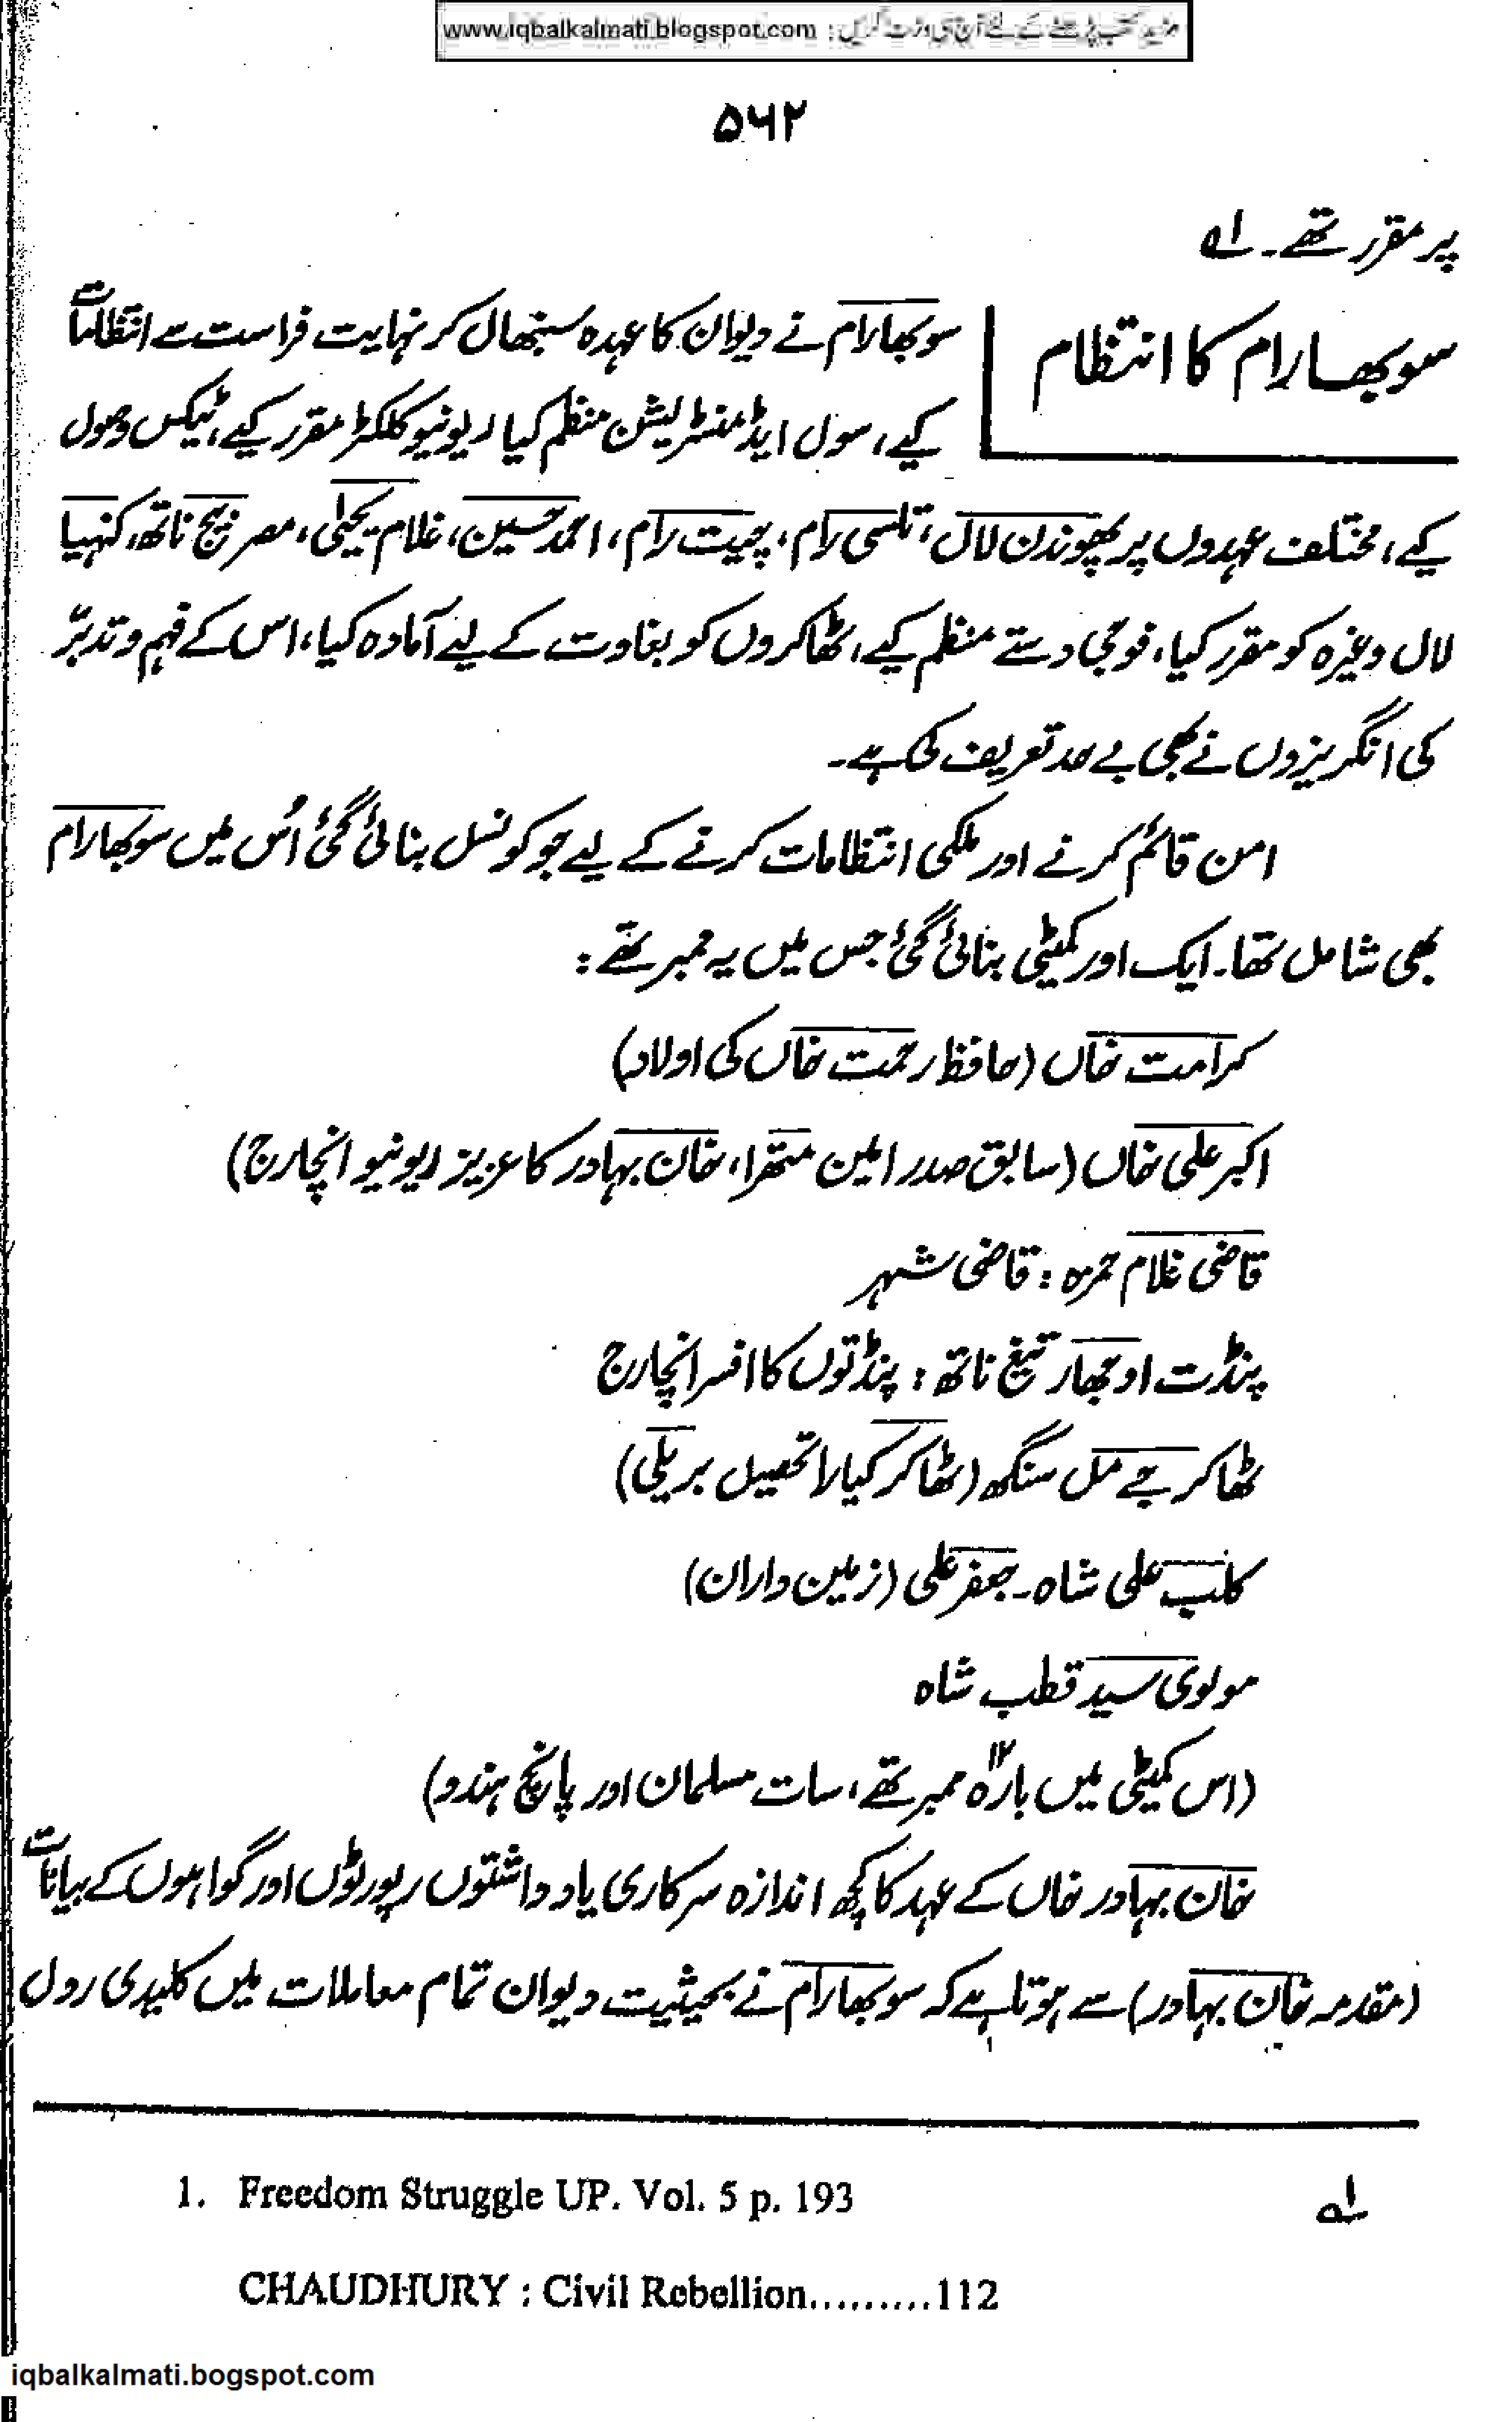 مزید کتب پڑھنے کے لئے آج ہی وزٹ کریں : www.iqbalkalmati.blogspot.com
۵۶۲
پر مقرر تھے۔ ۱ه
سوبھارام کا انتظام
سوبھارام نے دیوان کا عہدہ سنبھال کر نہایت فراست سے انتظامات
کیے، سول ایڈمنسٹریشن منظم کیا ریونیو کلکٹر مقرر کیے، ٹیکس وصول
کیے، مختلف عہدوں پر پھوندن لال، تلسی رام، چیت رام، احمد حسین، غلام یحییٰ، مصر بیج ناتھ، کنہیا
لال وغیرہ کو مقرر کیا، فوجی دستے منظم کیے، ٹھاکروں کو بغاوت کے لیے آمادہ کیا، اس کے فہم و تدبّر
کی انگریزوں نے بھی بے حد تعریف کی ہے۔
امن قائم کرنے اور ملکی انتظامات کرنے کے لیے جو کونسل بنائی گئی اُس میں سوبھارام
بھی شامل تھا۔ ایک اور کمیٹی بنائی گئی جس میں یہ ممبر تھے :
کرامت خاں (حافظ رحمت خاں کی اولاد)
اکبر علی خاں (سابق صدر امین متھرا، خان بہادر کا عزیز ریونیو انچارج)
قاضی غلام حمزہ : قاضی شہر
پنڈت اوجھار تیغ ناتھ : پنڈتوں کا افسر انچارج
ٹھاکر جے مل سنگھ (ٹھاکر کیارا تحصیل بریلی)
کلب علی شاہ۔ جعفر علی (زمین داران)
مولوی سید قطب شاہ
(اس کمیٹی میں بارہ ۱۲ ممبر تھے، سات مسلمان اور پانچ ہندو)
خان بہادر خاں کے عہد کا کچھ اندازہ سرکاری یادداشتوں رپورٹوں اور گواہوں کے بیانات
(مقدمہ خان بہادر) سے ہوتا ہے کہ سوبھارام نے بحیثیت دیوان تمام معاملات میں کلیدی رول
۱ه
1. Freedom Struggle UP. Vol. 5 p. 193
CHAUDHURY : Civil Rebellion.........112
iqbalkalmati.bogspot.com